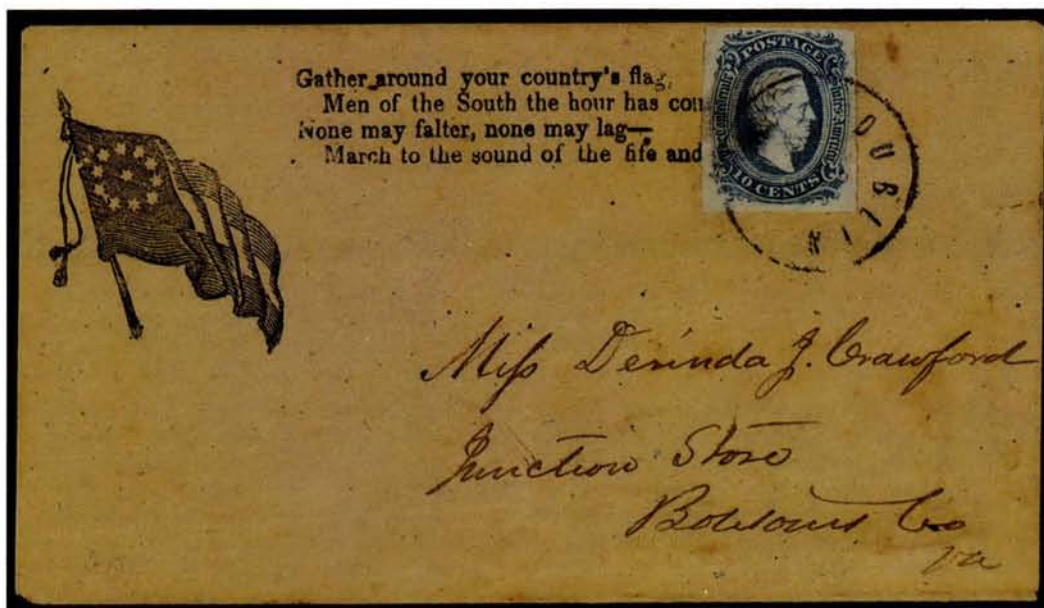 Gather around your country's flag,
Men of the South the hour has com
None may falter, none may lag—
March to the sound of the fife and
POSTAGE
10 CENTS
DUBLIN
Miss Derinda J. Crawford
Junction Store
Botetourt Co
Va